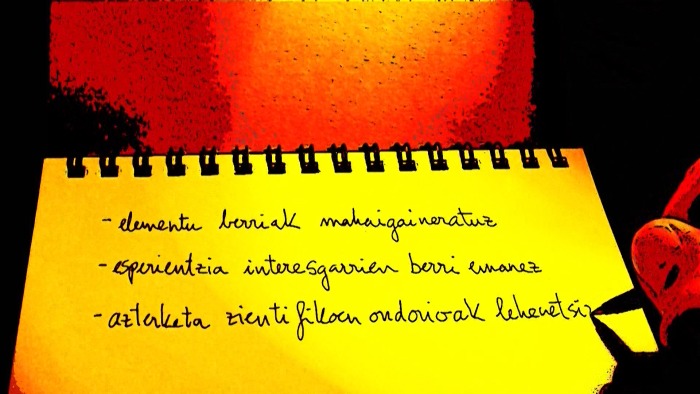 - elementu berriak mahaigaineratuz
- esperientzia interesgarrien berri emanez
- azterketa zientifikoen ondorioak lehenetsiz